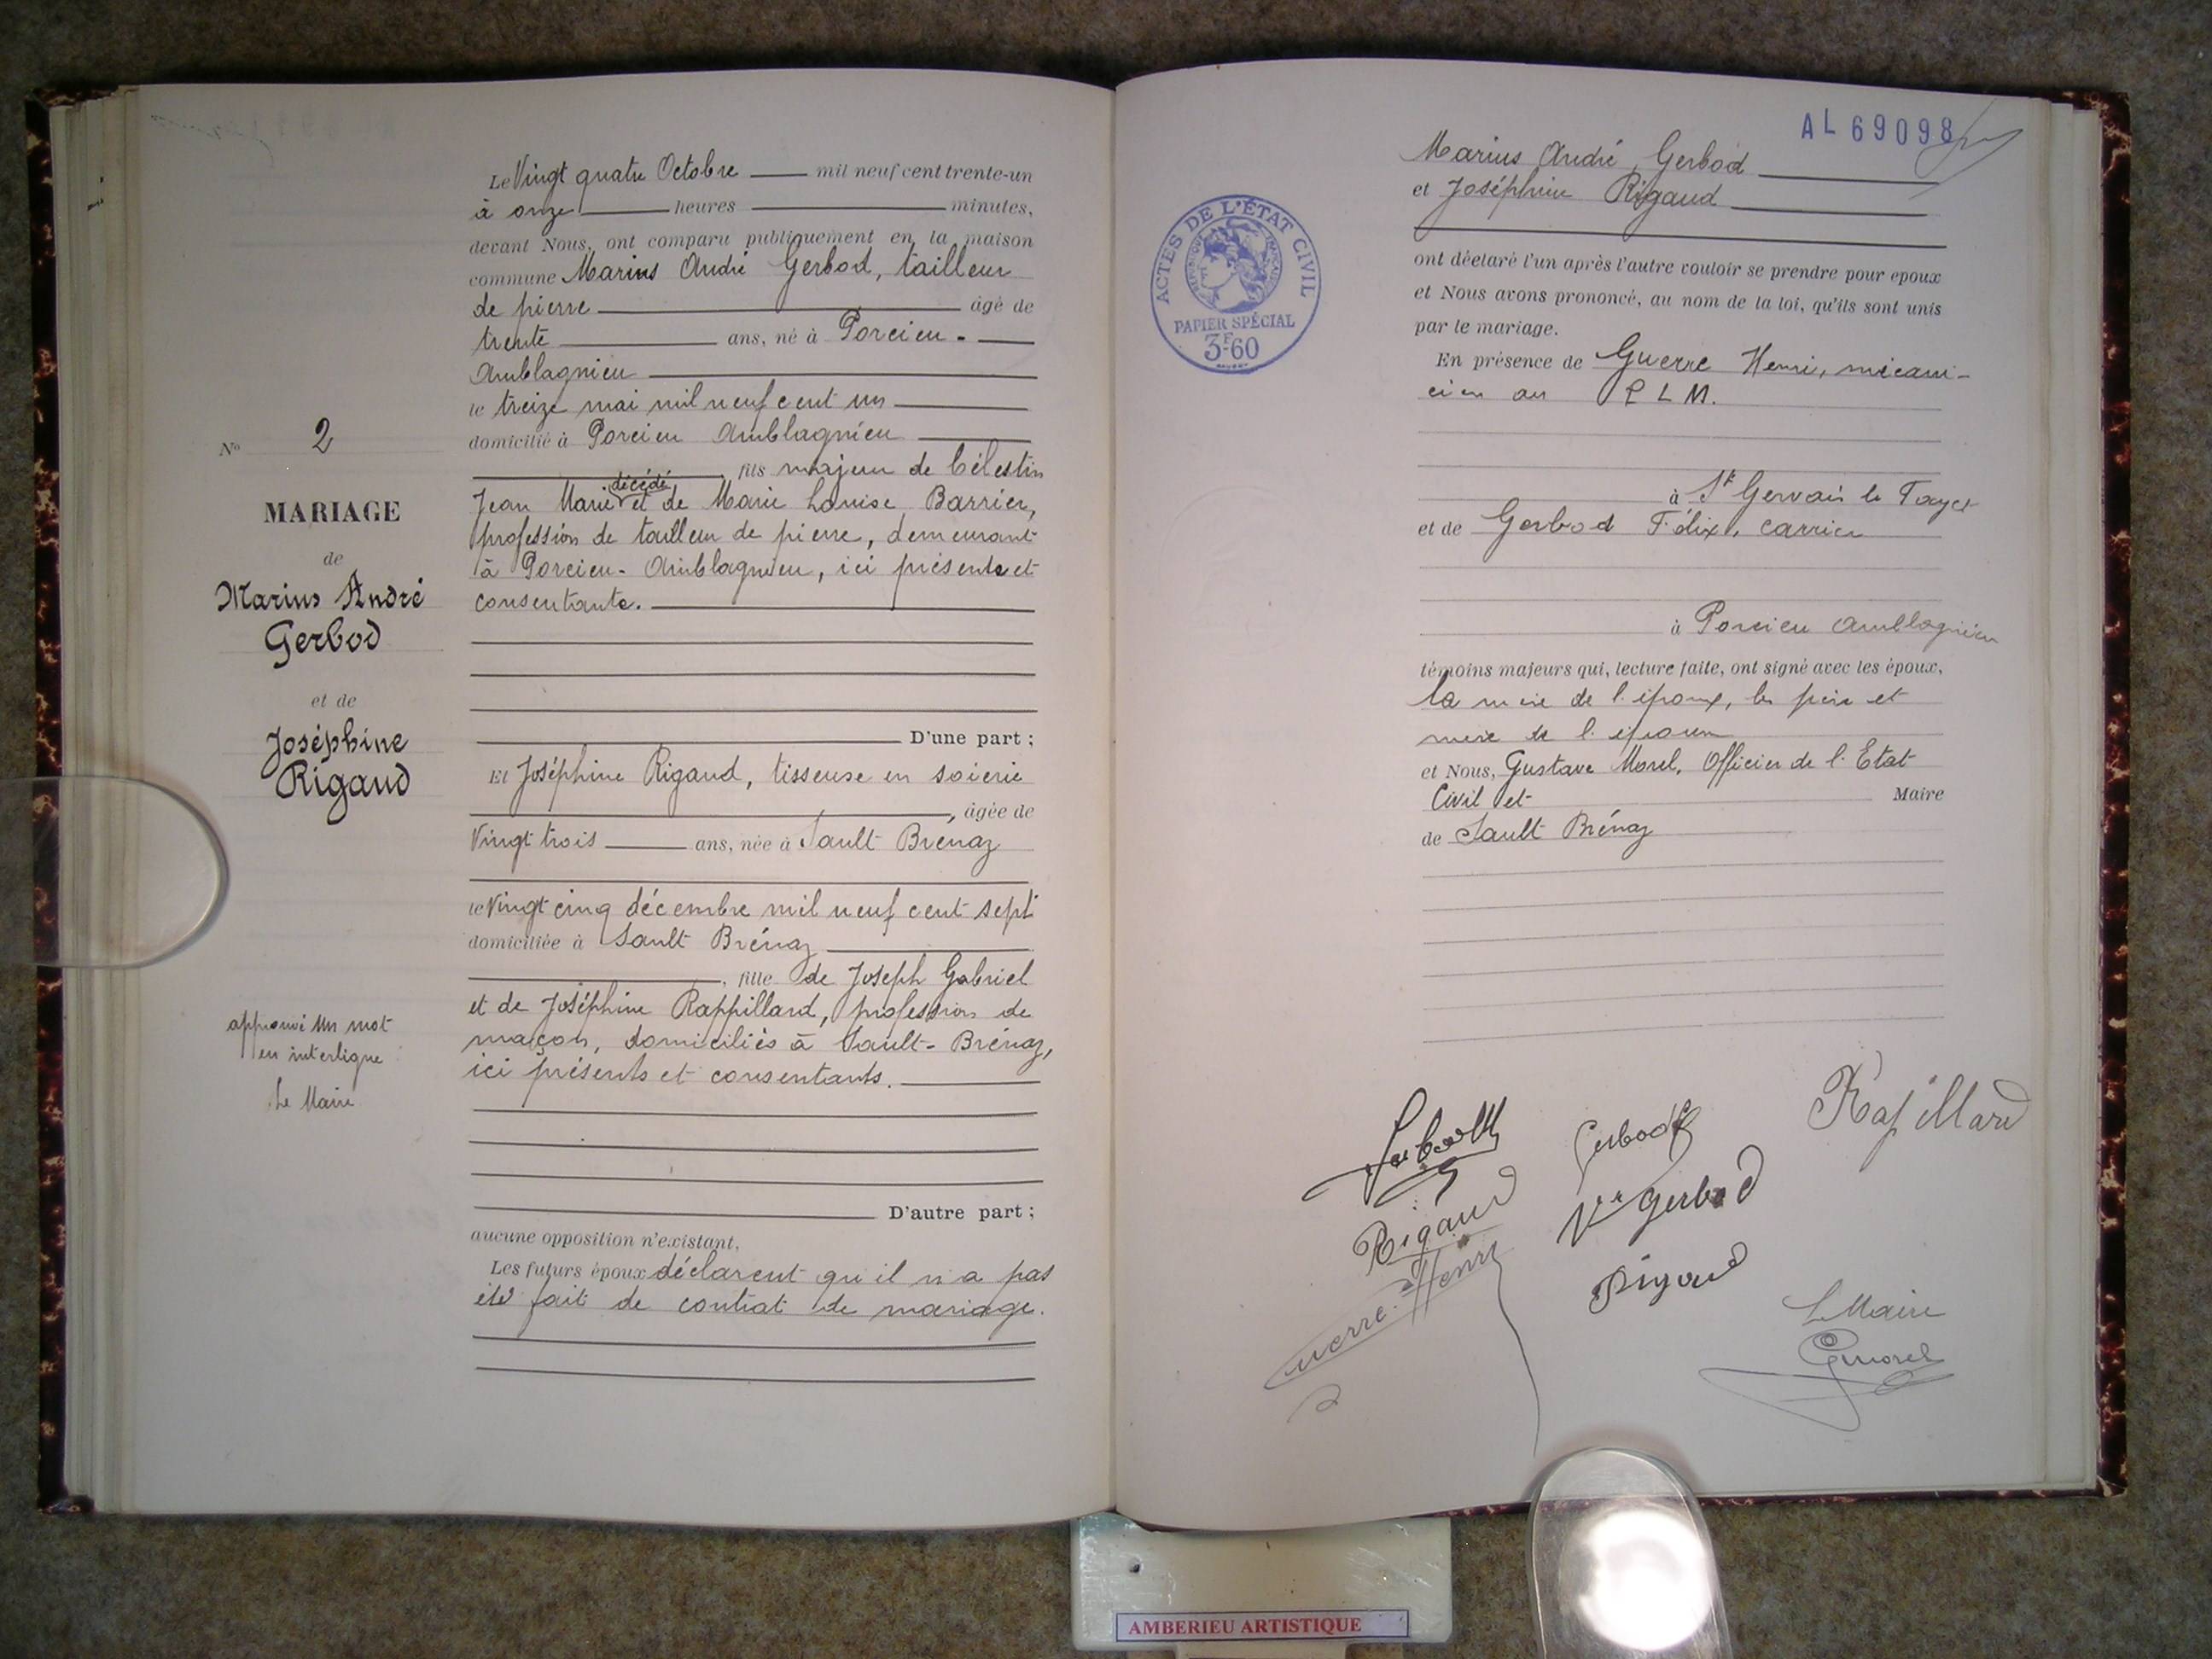 N° 2
MARIAGE
de
Marius André
Gerbod
et de
Joséphine
Rigaud
approuvé un mot
en interligne
Le Maire
Le Vingt quatre Octobre mil neuf cent trente-un
à onze heures minutes,
devant Nous, ont comparu publiquement en la maison
commune Marius André Gerbod, tailleur
de pierre âgé de
trente ans, né à Porcieu-
Amblagnieu
le treize mai mil neuf cent un
domicilié à Porcieu Amblagnieu
, fils majeur de Célestin
décédé
Jean Marie et de Marie Louise Barrier,
profession de tailleur de pierre, demeurant
à Porcieu-Amblagnieu, ici présente et
consentante.
D'une part ;
Et Joséphine Rigaud, tisseuse en soierie
, âgée de
Vingt trois ans, née à Sault Brenaz
le Vingt cinq décembre mil neuf cent sept
domiciliée à Sault Brénaz
, fille de Joseph Gabriel
et de Joséphine Rappillard, profession de
maçon, domiciliés à Sault-Brénaz,
ici présents et consentants.
D'autre part ;
aucune opposition n'existant,
Les futurs époux déclarent qu'il n'a pas
été fait de contrat de mariage.
AL 69098
ACTES DE L'ÉTAT CIVIL
RÉPUBLIQUE FRANÇAISE
PAPIER SPÉCIAL
3F60
Marius André Gerbod
et Joséphine Rigaud
ont déclaré l'un après l'autre vouloir se prendre pour epoux
et Nous avons prononcé, au nom de la loi, qu'ils sont unis
par le mariage.
En présence de Guerre Henri, mécani-
cien au P L M.
à St Gervais le Fayet
et de Gerbod Félix, carrier
à Porcieu Amblagnieu
témoins majeurs qui, lecture faite, ont signé avec les époux,
la mère de l'époux, les père et
mère de l'épouse
et Nous, Gustave Morel, Officier de l'Etat
Civil et Maire
de Sault Brénaz
Rapillard
Gerbod
Rigaud
Ve Gerbod
Guerre Henri
Rigaud
Le Maire
GMorel
AMBERIEU ARTISTIQUE